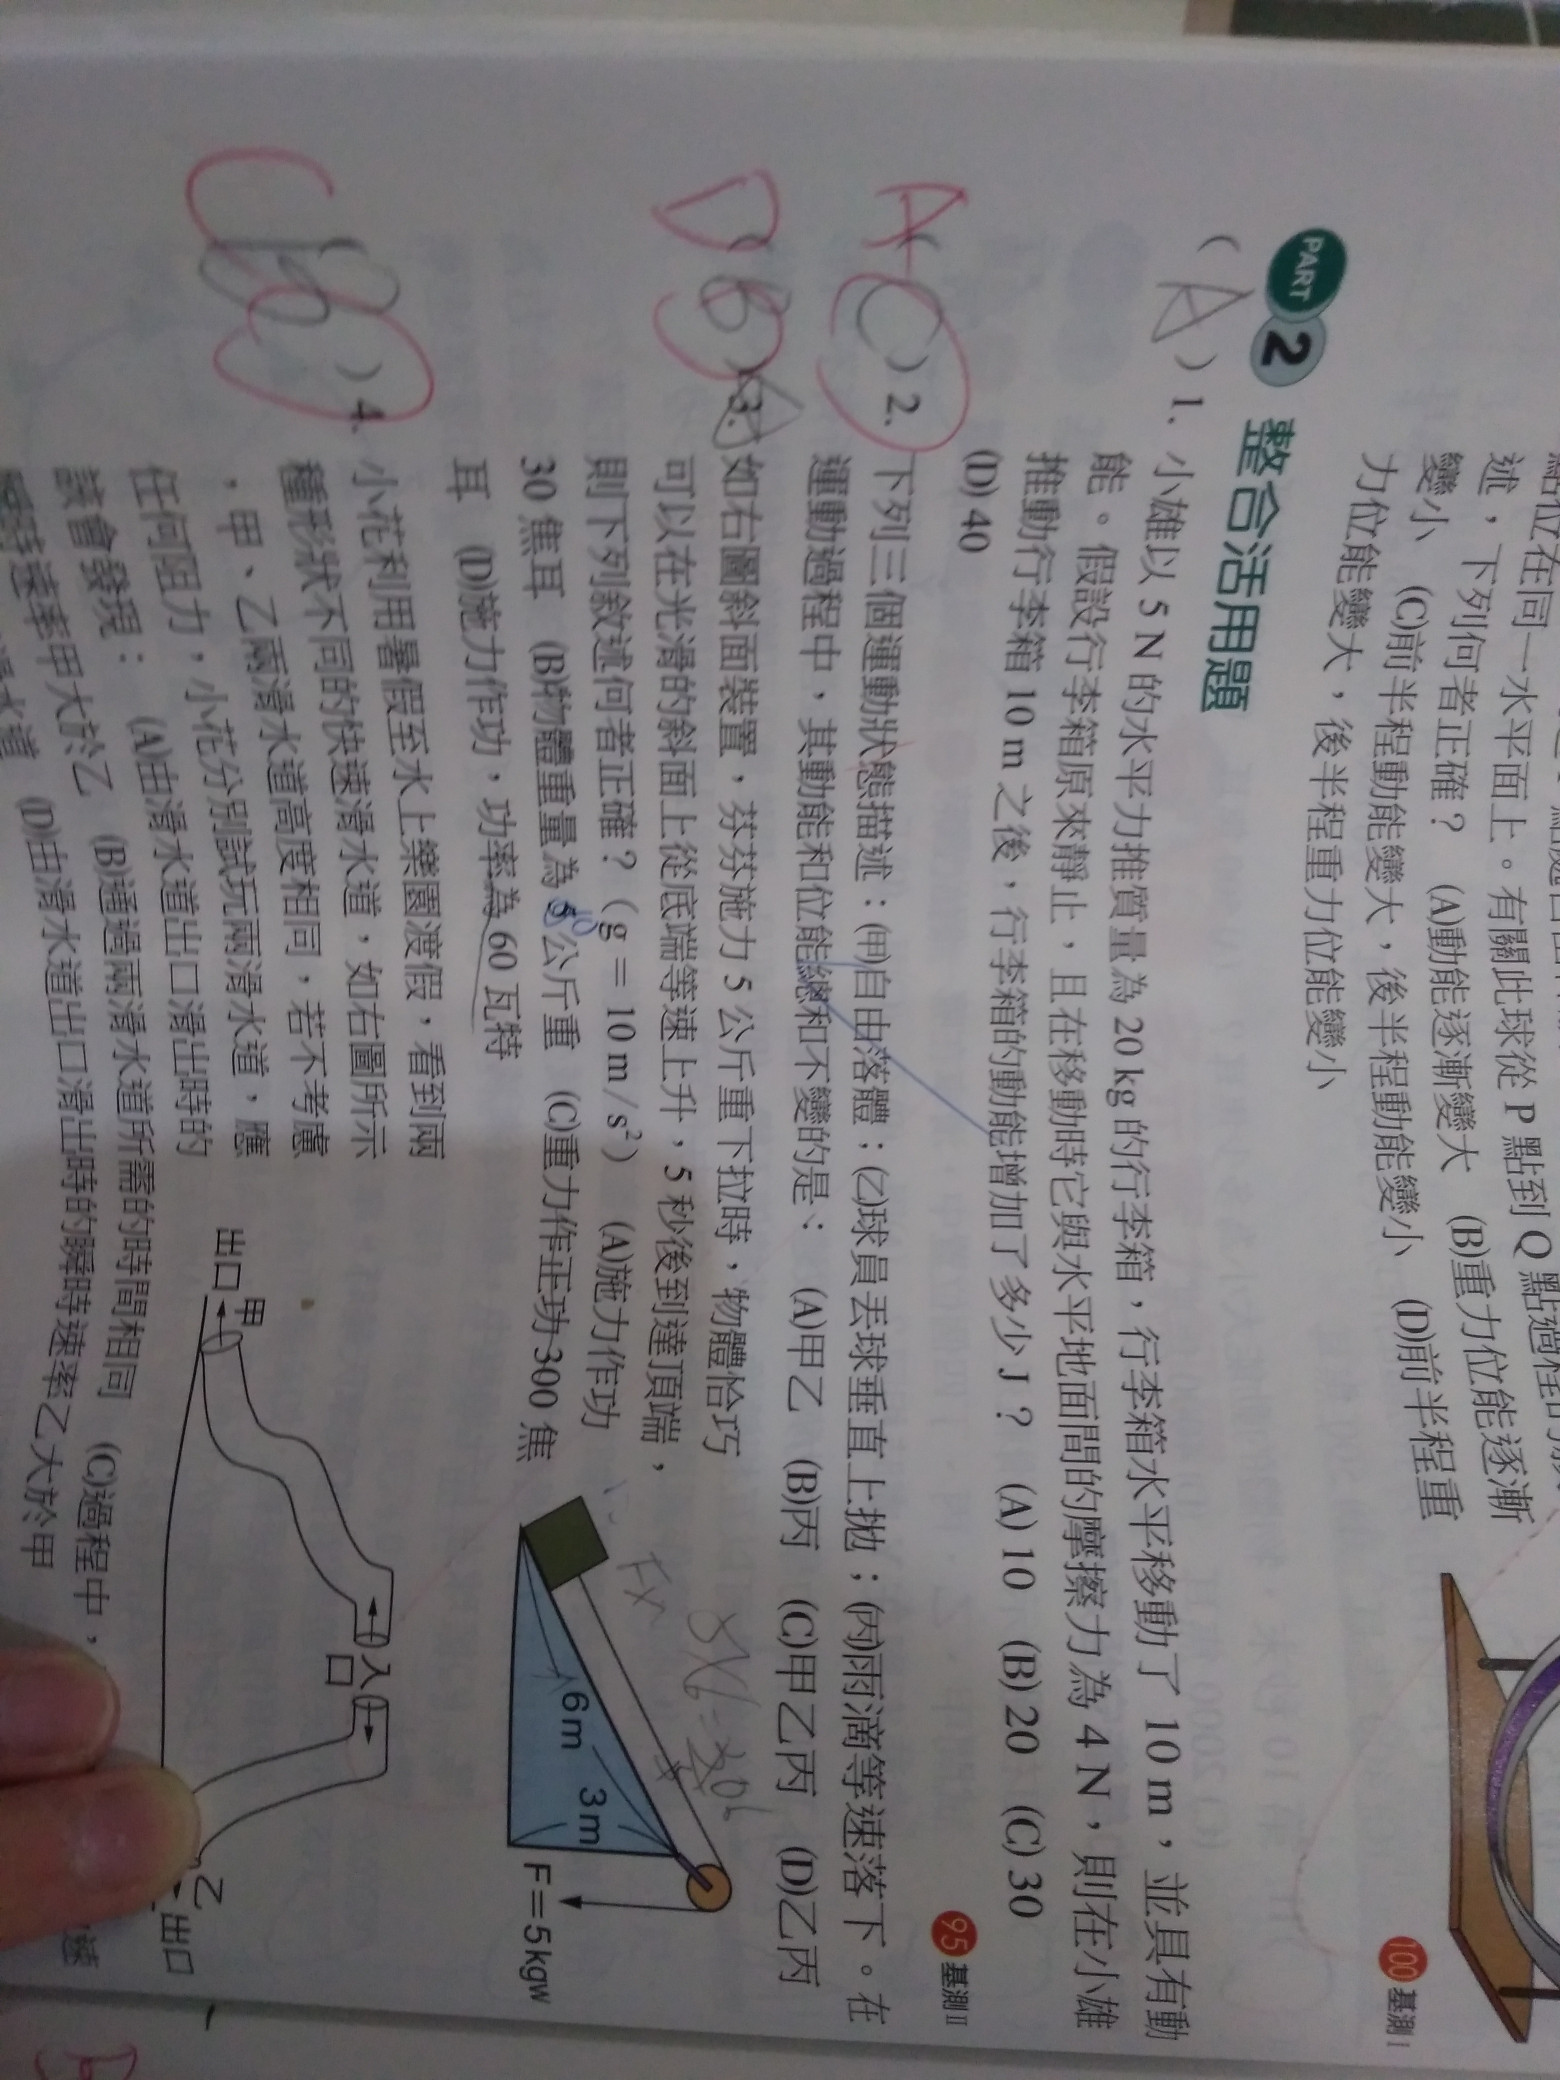 述，下列何者正確？ (A)動能逐漸變大 (B)重力位能逐漸
變小 (C)前半程動能變大，後半程動能變小 (D)前半程重
力位能變大，後半程重力位能變小
100 基測I
PART 2 整合活用題
( A ) 1. 小雄以 5 N 的水平力推質量為 20 kg 的行李箱，行李箱水平移動了 10 m，並具有動
能。假設行李箱原來靜止，且在移動時它與水平地面間的摩擦力為 4 N，則在小雄
推動行李箱 10 m 之後，行李箱的動能增加了多少 J？ (A) 10 (B) 20 (C) 30
(D) 40
95 基測II
A ( C ) 2. 下列三個運動狀態描述：(甲)自由落體；(乙)球員丟球垂直上拋；(丙)雨滴等速落下。在
運動過程中，其動能和位能總和不變的是： (A)甲乙 (B)丙 (C)甲乙丙 (D)乙丙
D ( B ) 3. 如右圖斜面裝置，芬芬施力 5 公斤重下拉時，物體恰巧
可以在光滑的斜面上從底端等速上升，5 秒後到達頂端，
則下列敘述何者正確？（g = 10 m / s²） (A)施力作功
30 焦耳 (B)物體重量為 5 公斤重 (C)重力作正功 300 焦
耳 (D)施力作功，功率為 60 瓦特
10
FX
6 m
3 m
F＝5 kgw
C ( ) 4. 小花利用暑假至水上樂園渡假，看到兩
種形狀不同的快速滑水道，如右圖所示
，甲、乙兩滑水道高度相同，若不考慮
任何阻力，小花分別試玩兩滑水道，應
該會發現： (A)由滑水道出口滑出時的
瞬時速率甲大於乙 (B)通過兩滑水道所需的時間相同 (C)過程中，
(D)由滑水道出口滑出時的瞬時速率乙大於甲
甲
出口
入口
乙
出口